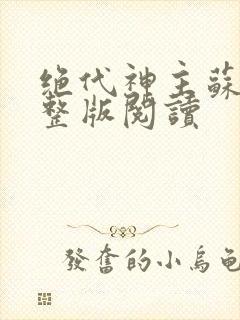 绝代神主蘇
整版閱讀
發奮的小烏龜